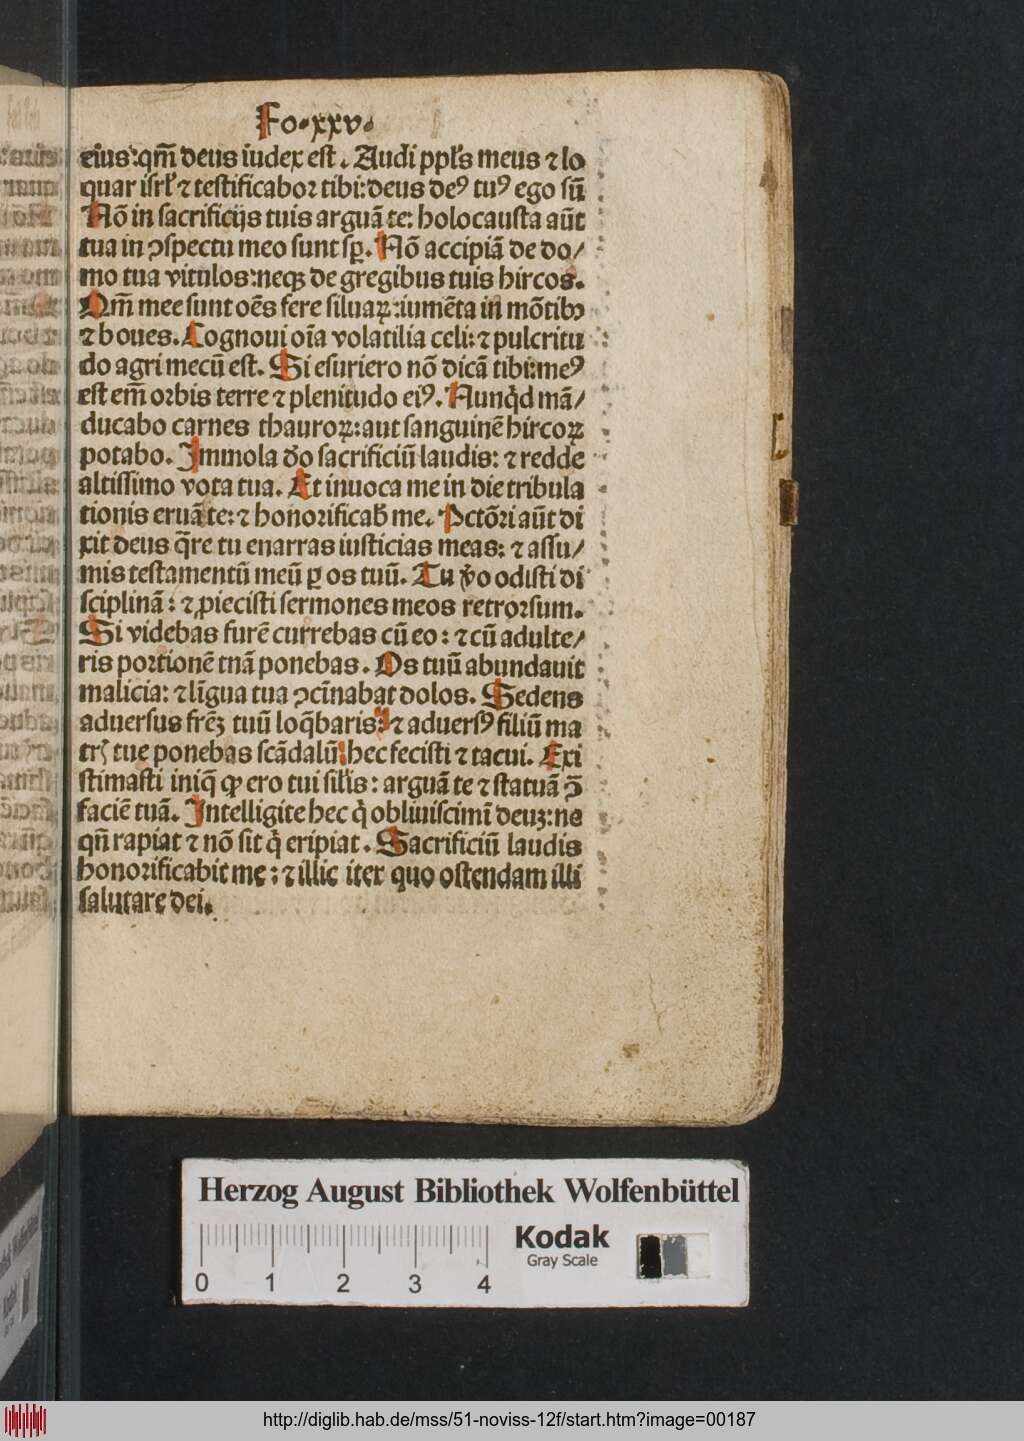 Fo·xxv·
eius:qm̄ deus iudex est. Audi ppl's meus ⁊ lo
quar isrl' ⁊ testificabor tibi:deus deꝰ tuꝰ ego sū
Nō in sacrificijs tuis arguā te: holocausta aūt
tua in ꝯspectu meo sunt sꝑ. Nō accipiā de do/
mo tua vitulos:neqꝫ de gregibus tuis hircos.
Qm̄ mee sunt oēs fere siluaꝝ:iumēta in mōtibꝫ
⁊ boues. Cognoui oīa volatilia celi:⁊ pulcritu
do agri mecū est. Si esuriero nō dicā tibi:meꝰ
est em̄ orbis terre ⁊ plenitudo eiꝰ. Nunqͥd mā/
ducabo carnes thauroꝝ:aut sanguinē hircoꝝ
potabo. Immola dō sacrificiū laudis: ⁊ redde
altissimo vota tua. Et inuoca me in die tribula
tionis eruā te:⁊ honorificab̄ me. Pctōri aūt di
xit deus q̄re tu enarras iusticias meas: ⁊ assu/
mis testamentū meū ꝑ os tuū. Tu v̄o odisti di
sciplinā: ⁊ ꝓiecisti sermones meos retrorsum.
Si videbas furē currebas cū eo: ⁊ cū adulte/
ris portionē tuā ponebas. Os tuū abundauit
malicia: ⁊ līgua tua ꝯcīnabat dolos. Sedens
aduersus frēꝫ tuū loq̄baris: ⁊ aduersꝰ filiū ma
trꝭ tue ponebas scādalū: hec fecisti ⁊ tacui. Exi
stimasti iniq̄ ꝙ ero tui sil'is: arguā te ⁊ statuā ꝯ̄
faciē tuā. Intelligite hec qͥ obliuiscimī deuꝫ: ne
qn̄ rapiat ⁊ nō sit qͥ eripiat. Sacrificiū laudis
honorificabit me: ⁊ illic iter quo ostendam illi
salutare dei.
Herzog August Bibliothek Wolfenbüttel
0 1 2 3 4
Kodak
Gray Scale
http://diglib.hab.de/mss/51-noviss-12f/start.htm?image=00187